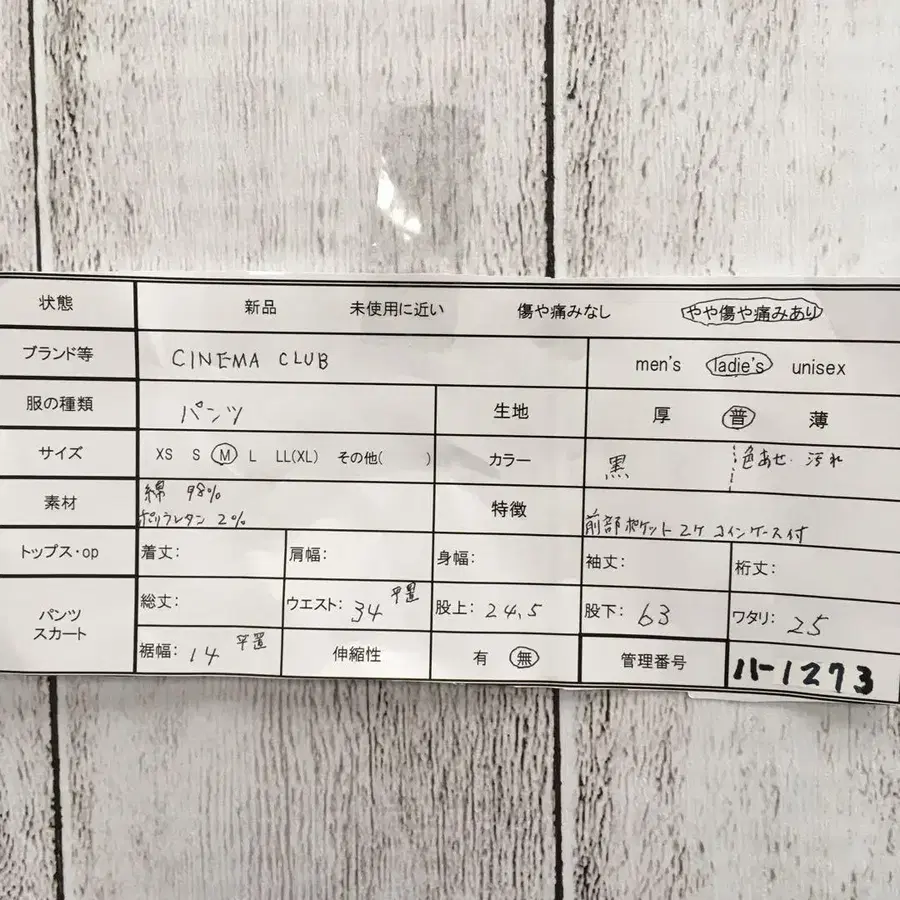 状態 新品 未使用に近い 傷や痛みなし やや傷や痛みあり
ブランド等 CINEMA CLUB men's ladie's unisex
服の種類 パンツ 生地 厚 普 薄
サイズ XS S M L LL(XL) その他( ) カラー 黒 色あせ・汚れ
素材 綿 98%
ポリウレタン 2%
特徴 前部ポケット2ケ コインケース付
トップス・op 着丈: 肩幅: 身幅: 袖丈: 裄丈:
パンツ
スカート
総丈: ウエスト: 34 平置 股上: 24.5 股下: 63 ワタリ: 25
裾幅: 14 平置 伸縮性 有 無 管理番号 ハ-1273